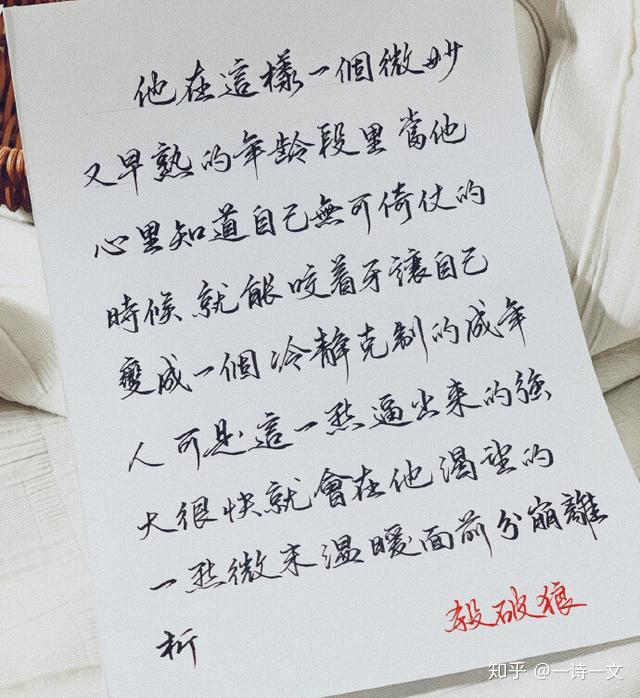 他在這樣一個微妙
又早熟的年齡段里當他
心里知道自己無可倚仗的
時候就能咬着牙讓自己
變成一個冷靜克制的成年
人可是這一點逼出來的強
大很快就會在他渴望的
一點微末溫暖面前分崩離
析
殺破狼
知乎 @一诗一文